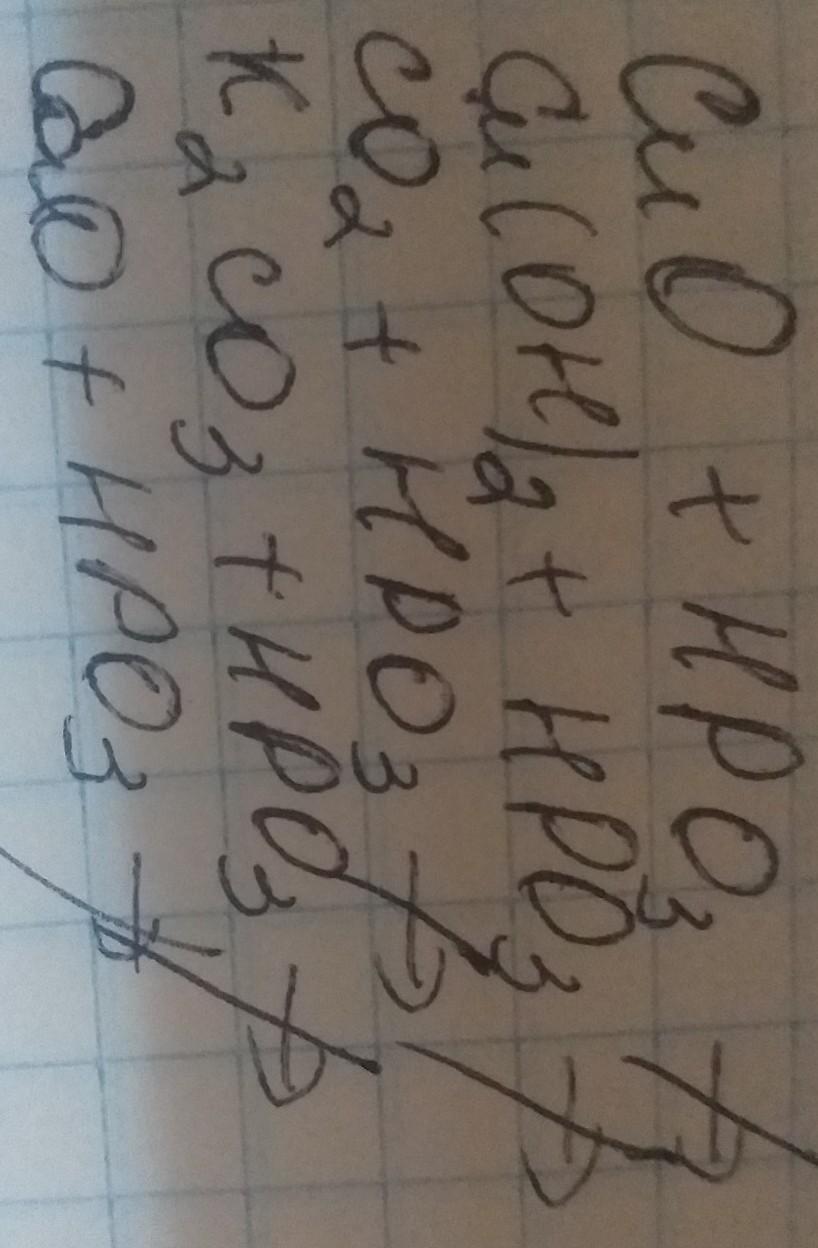 CuO + HPO3 ↛
Cu(OH)2 + HPO3 ↛
CO2 + HPO3 ↛
K2CO3 + HPO3 ↛
BaO + HPO3 ↛